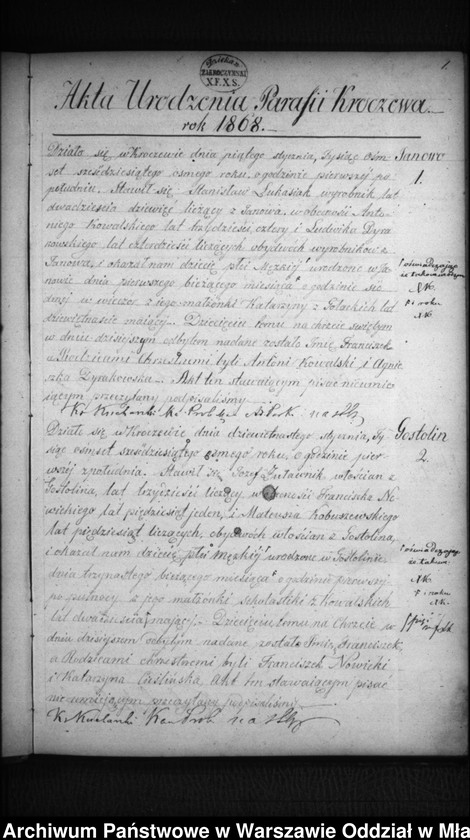 1.
Dziekan
ZAKROCZYMSKI
X.F.X.S.
Akta Urodzenia Parafii Kroczewa
rok 1868.
Działo się w Kroczewie dnia piątego stycznia, Tysiąc ośm
set sześdziesiątego osmego roku, o godzinie pierwszej po
południu. Stawił się Stanisław Łukasiak wyrobnik lat
dwadzieścia dziewięć liczący z Janowa, w obecności Anto-
niego Kowalskiego lat trzydzieści cztery i Ludwika
nowskiego lat czterdzieści liczących obydwóch wyrobników z
Janowa, i okazał nam dziecię płci Męzkiej urodzone w Ja-
nowie dnia pierwszego bieżącego miesiąca o godzinie sió
dmej w wieczór z jego małżonki Katarzyny z lat
dziewiętnaście mającej. Dziecięciu temu na chrzcie świętym
w dniu dzisiejszym odbytem nadane zostało Imię Franciszek
a Rodzicami Chrzestnemi byli Antoni Kowalski i Agnie
szka. Akt ten stawającym pisać nieumie
jącym przeczytany podpisaliśmy
Janowo
1.
Działo się w Kroczewie dnia dziewiętnastego stycznia, Ty
siąc osmset sześdziesiątego osmego roku, o godzinie pier
wszej z południa. Stawił się Józef włościan z
Gostolina, lat trzydzieści liczący w obecności Franciszka No
wickiego lat pięćdziesiąt jeden, i Mateusza Kobuszewskiego
lat pięćdziesiąt liczących, obydwóch włościan z Gostolina,
i okazał nam dziecię płci Męzkiej urodzone w Gostolinie
dnia trzynastego bieżącego miesiąca o godzinie pierwszej
po północy z jego małżonki Scholastiki z Kowalskich
lat dwadzieścia mającej. Dziecięciu temu na Chrzcie w
dniu dzisiejszym odbytym nadane zostało Imie, Franciszek,
a Rodzicami chrzestnemi byli Franciszek Nowicki
i Katarzyna. Akt ten stawającym pisać
nieumiejącym przeczytany podpisaliśmy
Gostolin
2.
Archiwum Państwowe w Warszawie Oddział w Mła